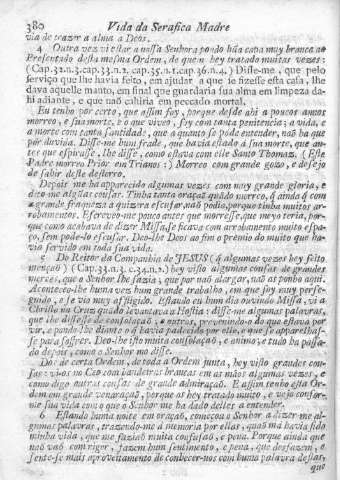 380 Vida da Serafica Madre
via de trazer a alma a Deos.
4 Outra vez vi estar a nossa Senhora pondo hũa capa muy branca ao
Presentado desta mesma Ordem, de quem hey tratado muitas vezes:
(Cap.32.n.3.cap.33.n.2. cap.35.n.1.cap.36.n.4.) Disse-me, que pelo
serviço que lhe havia feito, em ajudar a que se fizesse esta casa, lhe
dava aquelle manto, em sinal que guardaria sua alma em limpeza da-
hi adiante, e que naõ cahiria em peccado mortal.
Eu tenho por certo, que assim foy, porque desde ahi a poucos annos
morreo, e sua morte, e o que viveo, foy com tanta penitencia; a vida, e
a morte com tanta santidade, que a quanto se pode entender, naõ ha que
pôr duvida. Disse-me hum frade, que havia estado à sua morte, que an-
tes que espirasse, lhe disse, como estava com elle Santo Thomaz. (Este
Padre morreo Prior em Trianos:) Morreo com grande gozo, e desejo
de sahir deste desterro.
Depois me ha apparecido algumas vezes com muy grande gloria, e
dito-me algũas cousas. Tinha tanta oraçaõ quando morreo, q̃ ainda q̃ com
a grande fraqueza a quizera escusar, naõ podia, porque tinha muitos ar-
robamentos. Escreveo-me pouco antes que morresse, que meyo teria, por-
que como acabava de dizer Missa, se ficava com arrobamento muito espa-
ço, sem pode-lo escusar. Deo-lhe Deos ao fim o premio do muito que ha-
via servido em toda sua vida.
5 Do Reitor da Companhia de JESUS (q̃ algumas vezes hey feito
mençaõ) (Cap.33.n.3. c.34.n.2.) hey visto algumas cousas de grandes
mercês, que o Senhor lhe fazia, que por naõ alargar, naõ as ponho aqui.
Aconteceo-lhe huma vez hum grande trabalho, em que foy muy perse-
guido, e se vio muy affligido. Estando eu hum dia ouvindo Missa, vi a
Christo na Cruz quando levantava a Hostia: disse-me algumas palavras,
que lhe dissesse de consolaçaõ, e outras, prevenindo-o do que estava por
vir, e pondo-lhe diante o q̃ havia padecido por elle, e que se apparelhas-
se para soffrer. Deo-lhe isto muita consolaçaõ, e animo, e tudo ha passa-
do depois, como o Senhor mo disse.
Dos de certa Ordem, de toda a Ordem junta, hey visto grandes cou-
sas: vi-os no Ceo com bandeiras brancas em as mãos algumas vezes, e
como digo outras cousas de grande admiraçaõ. E assim tenho esta Or-
dem em grande veneraçaõ, porque os hey tratado muito, e vejo confor-
me sua vida com o que o Senhor me ha dado delles a entender.
6 Estando huma noite em oraçaõ, começou o Senhor a dizer-me al-
gumas palavras, trazendo-me á memoria por ellas, quaõ má havia sido
minha vida, que me faziaõ muita confusaõ, e pena. Porque ainda que
naõ vaõ com rigor, fazem hum sentimento, e pena, que desfazem, e
sente-se mais aproveitamento de conhecer-nos com huma palavra destas,
que